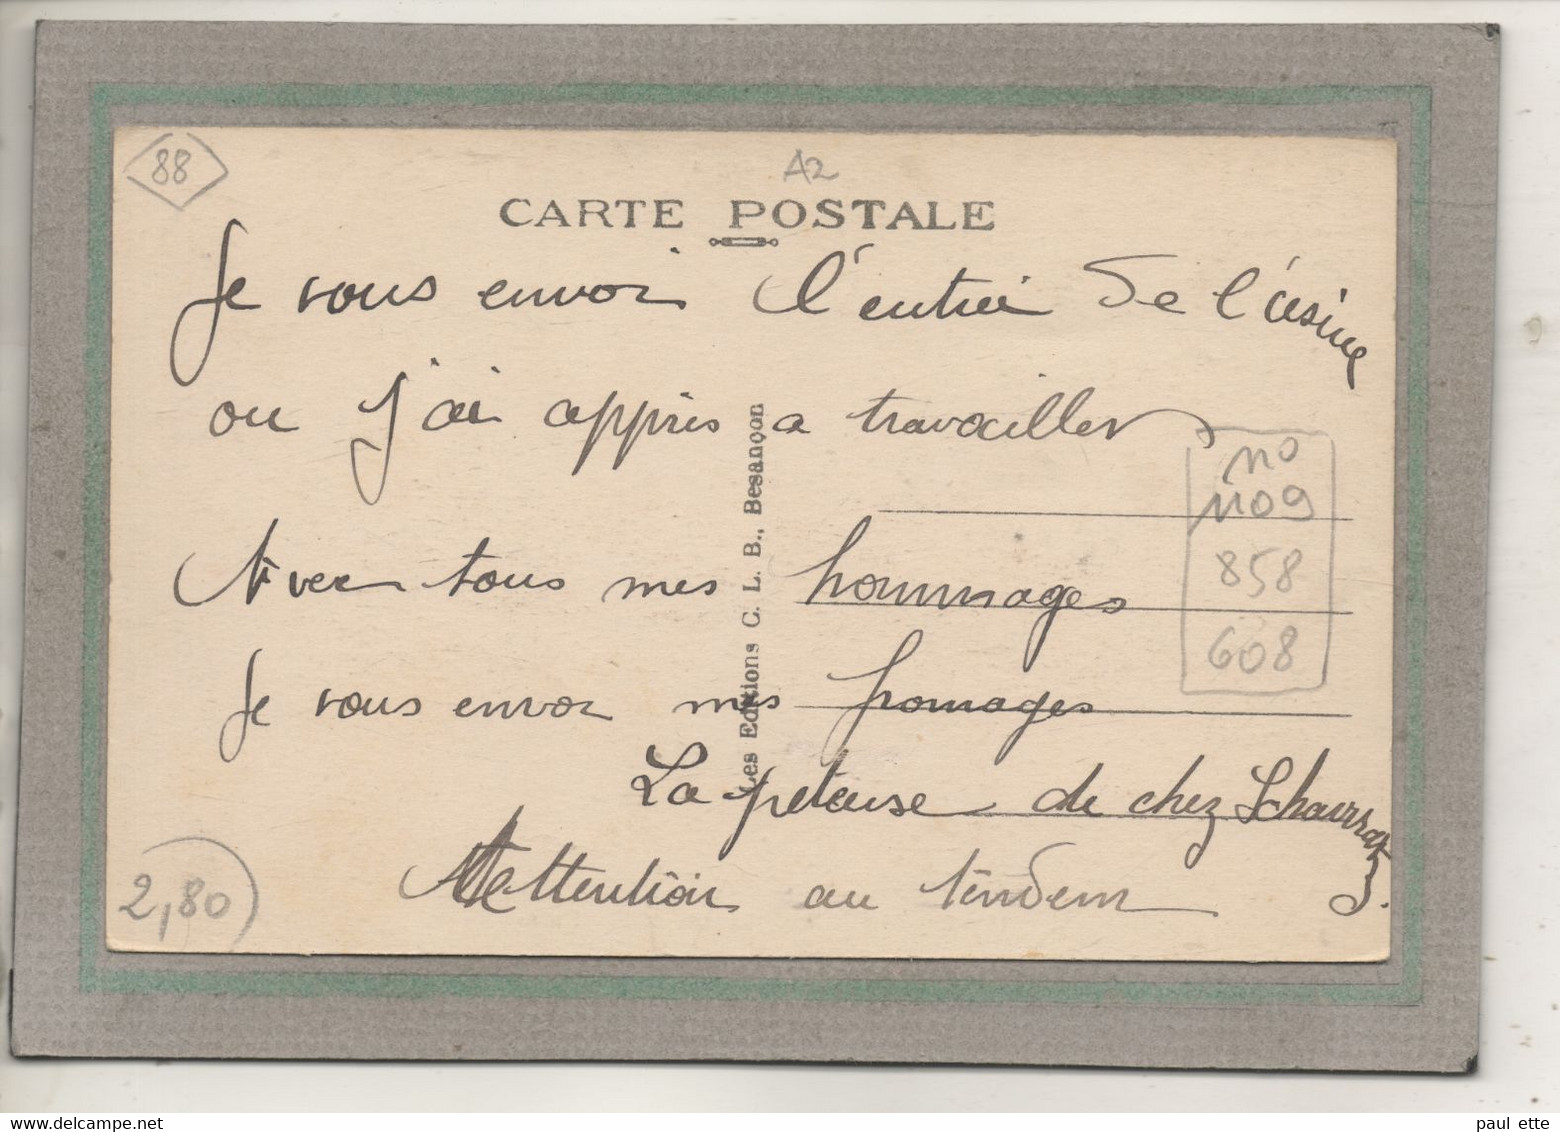 88
A2
CARTE POSTALE
Je vous envoi l'entrée de l'usine
ou j'ai appris a travailler
no
1109
858
608
Avec tous mes hommages
Je vous envoi mes fromages
La péteuse de chez
Attention au tendem
2,80
Les Editions C. L. B., Besançon
paul ette